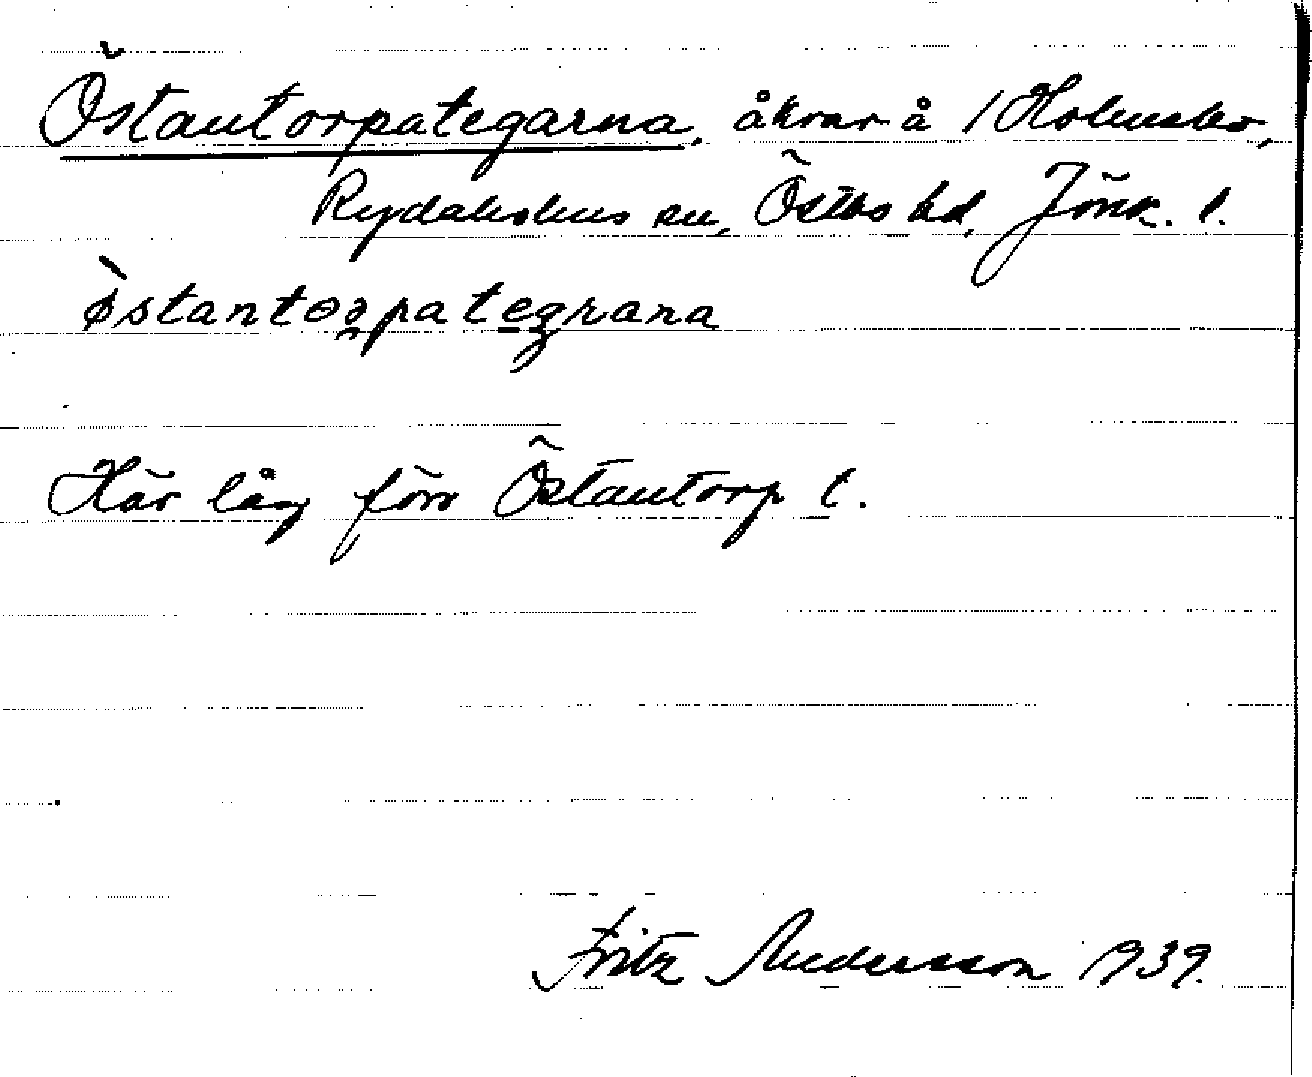 Östantorpategarna, åkrar å /Holmsbo,
Rydaholms sn, Östbo hd, Jönk. l.
ö̀stantorpategrana
Här låg förr Östantorp t.
Fritz Andersson 1939.